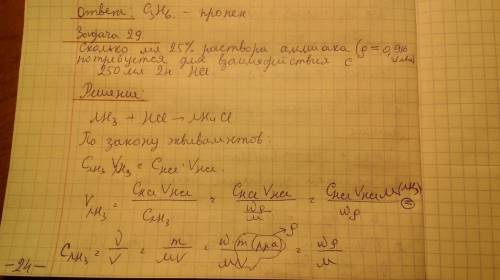 Ответ: C₃H₆ - пропен.
Задача 29.
Сколько мл 25% раствора аммиака (ρ = 0,916
потребуется для взаимодействия с г/мл)
250 мл 2н HCl.
Решение:
NH₃ + HCl → NH₄Cl
По закону эквивалентов:
C_NH₃ V_NH₃ = C_HCl · V_HCl.
V_NH₃ = C_HCl V_HCl / C_NH₃ = C_HCl V_HCl / (ωρ/M) = C_HCl V_HCl M(NH₃) / ωρ =
C_NH₃ = ν/V = m/MV = ω m(р-ра) / MV = ωρ/M
-24-